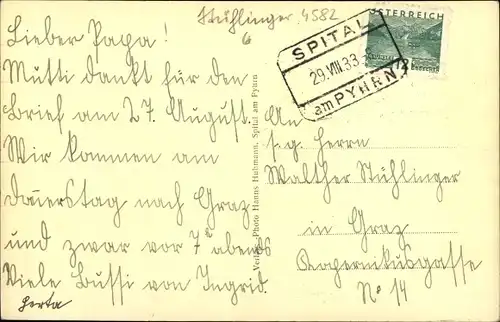 Stühlinger 4582
6
Lieber Papa!
Mutti dankt für den
Brief am 27. August.
Wir kommen am
Donerstag nach Graz
und zwar vor 7h abends
Viele Bussi von Ingrid.
Herta
Verlag: Photo Hanns Huhmann, Spital am Pyhrn
ÖSTERREICH
SPITAL
29.VIII.33
am PYHRN
An
s.g. Herrn
Walther Stühlinger
in Graz
Kopernikusgasse
No 14